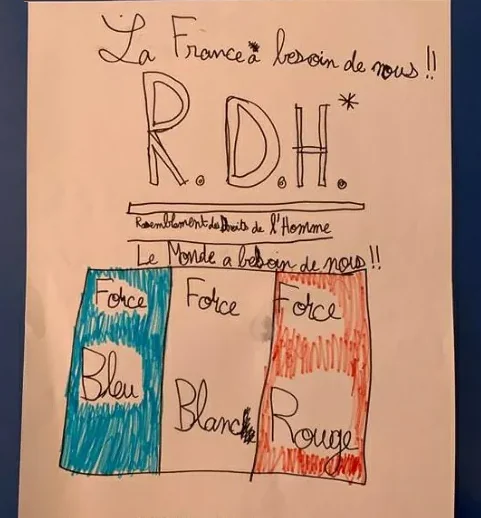 La France a besoin de nous !!
R.D.H.*
Rasemblement des Droits de l'Homme
Le Monde a besoin de nous !!
Force Force Force
Bleu Blanc Rouge